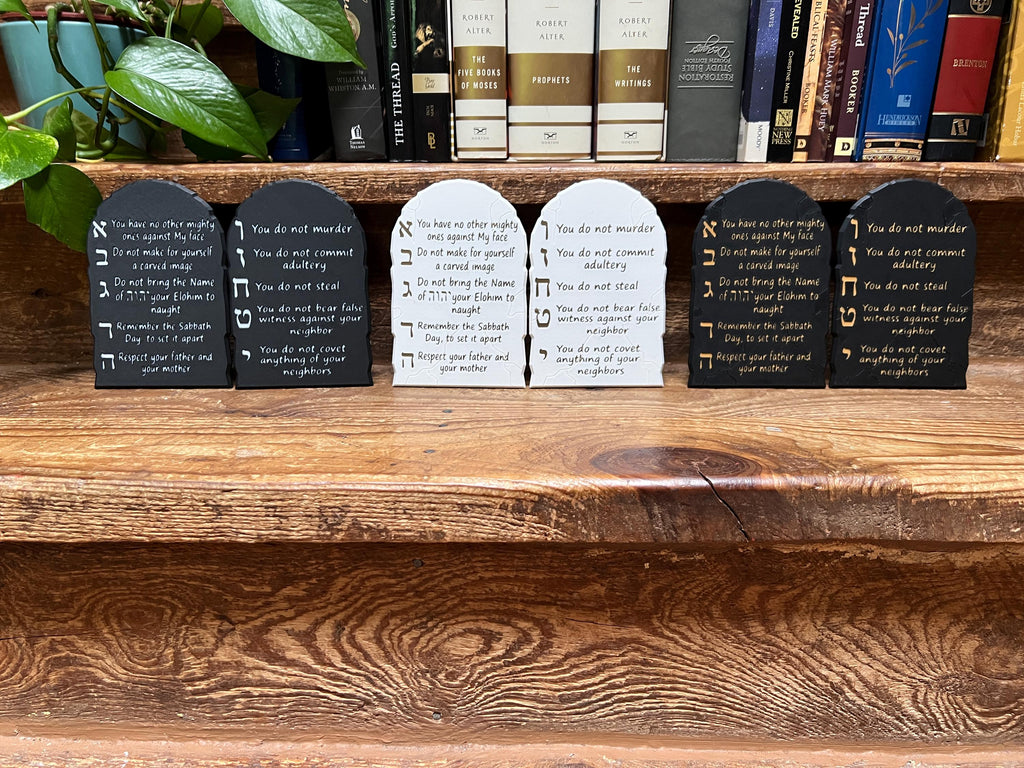 Translated by
WILLIAM
WHISTON, A.M.
THOMAS
NELSON
THE THREAD
ROBERT
ALTER
THE
FIVE BOOKS
OF MOSES
NORTON
ROBERT
ALTER
PROPHETS
NORTON
ROBERT
ALTER
THE
WRITINGS
NORTON
RESTORATION
STUDY BIBLE
FOURTH EDITION
DAVIS
MOODY
REVEALED
CHRISTINE MILLER
NOTHING
NEW
PRESS
BIBLICAL FEASTS
WILLIAM MARK HUEY
Thread
BOOKER
HENDRICKSON
BIBLES
BRENTON
א You have no other mighty
ones against My face
ב Do not make for yourself
a carved image
ג Do not bring the Name
of יהוה your Elohim to
naught
ד Remember the Sabbath
Day, to set it apart
ה Respect your father and
your mother
ו You do not murder
ז You do not commit
adultery
ח You do not steal
ט You do not bear false
witness against your
neighbor
י You do not covet
anything of your
neighbors
א You have no other mighty
ones against My face
ב Do not make for yourself
a carved image
ג Do not bring the Name
of יהוה your Elohim to
naught
ד Remember the Sabbath
Day, to set it apart
ה Respect your father and
your mother
ו You do not murder
ז You do not commit
adultery
ח You do not steal
ט You do not bear false
witness against your
neighbor
י You do not covet
anything of your
neighbors
א You have no other mighty
ones against My face
ב Do not make for yourself
a carved image
ג Do not bring the Name
of יהוה your Elohim to
naught
ד Remember the Sabbath
Day, to set it apart
ה Respect your father and
your mother
ו You do not murder
ז You do not commit
adultery
ח You do not steal
ט You do not bear false
witness against your
neighbor
י You do not covet
anything of your
neighbors